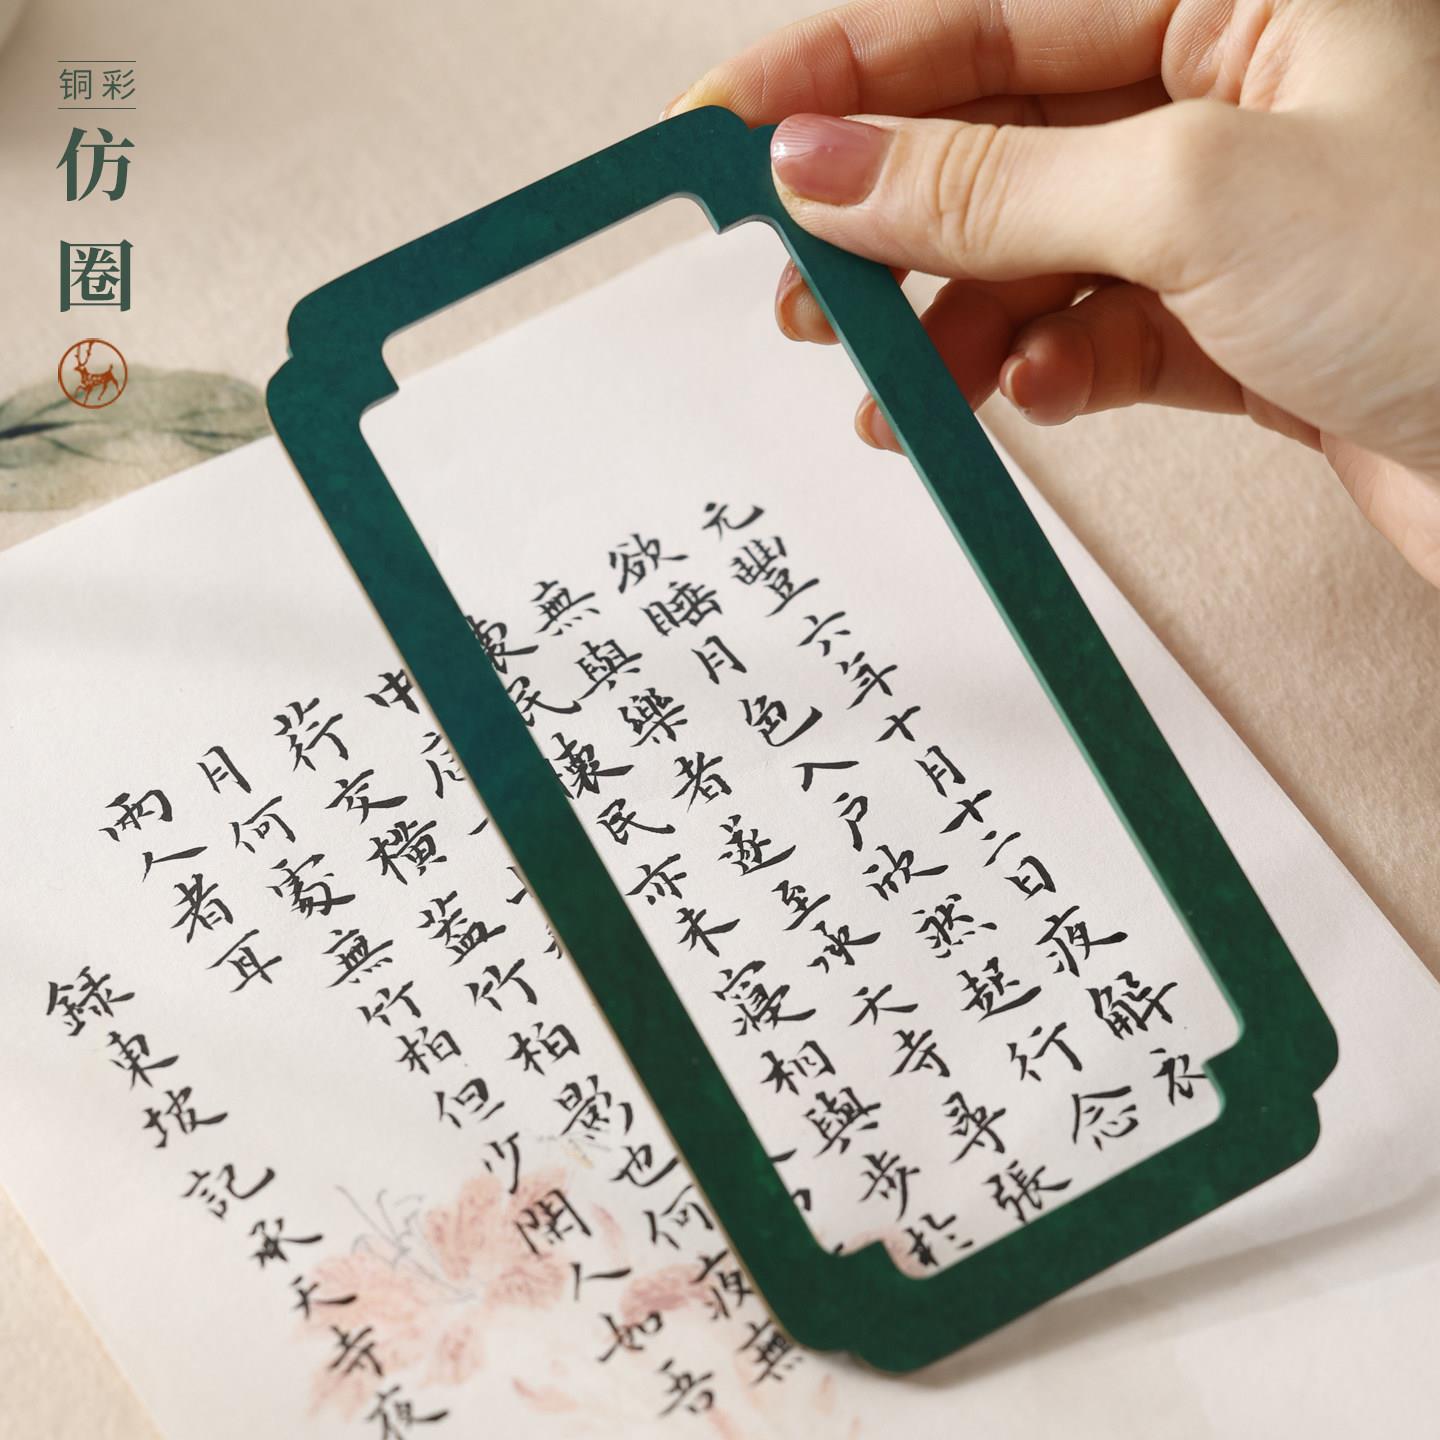 铜彩
仿圈
元豐六年十月十二日夜解衣
欲睡月色入户欣然起行念
無與樂者遂至承天寺尋張
懷民懷民亦未寢相與步於
中
荇交橫蓋竹柏影也何夜無
月何處無竹柏但少閑人如吾
兩人者耳
録東坡記承天寺夜